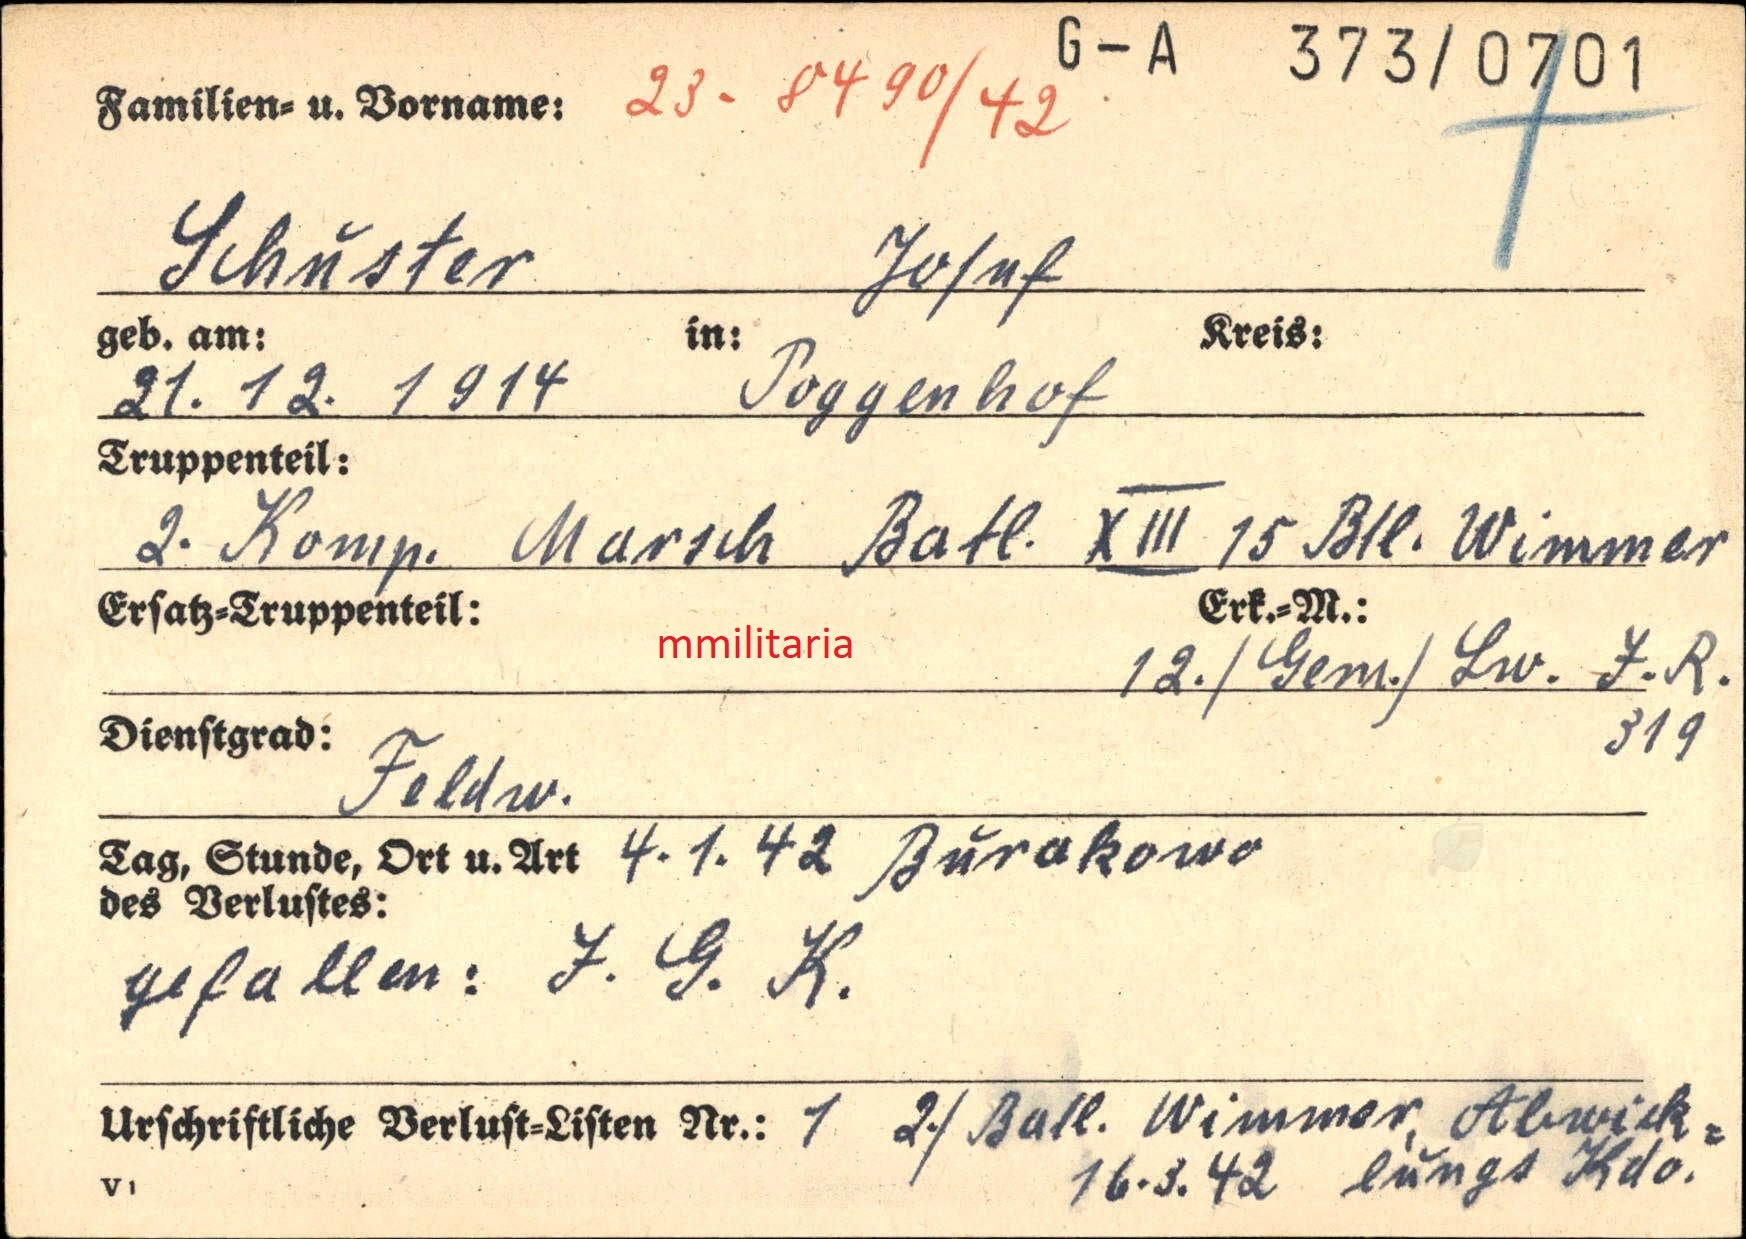 G-A 373/0701
Familien- u. Vorname: 23- 8490/42
Schuster Josef
geb. am: in: Kreis:
21. 12. 1914 Poggenhof
Truppenteil:
2. Komp. Marsch Batl. XIII 15 Btl. Wimmer
Ersatz-Truppenteil: Erk.-M.:
mmilitaria
12./Gem./ Lw. J.R.
319
Dienstgrad:
Feldw.
Tag, Stunde, Ort u. Art 4.1.42 Burakowo
des Verlustes:
gefallen: J. G. K.
Urschriftliche Verlust-Listen Nr.: 1 2./Batl. Wimmer, Abwick-
V1 16.3.42 lungs Kdo.